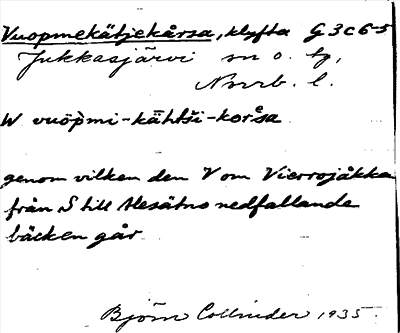 Vuopmekätjekårsa, klyfta G3c6-5
Jukkasjärvi sn o. tg,
Norrb. l.
W vuöpmi-kähtši-korsa
genom vilken den V om Vierrojåkka
från S till Alesätno nedfallande
bäcken går
Björn Collinder 1935.